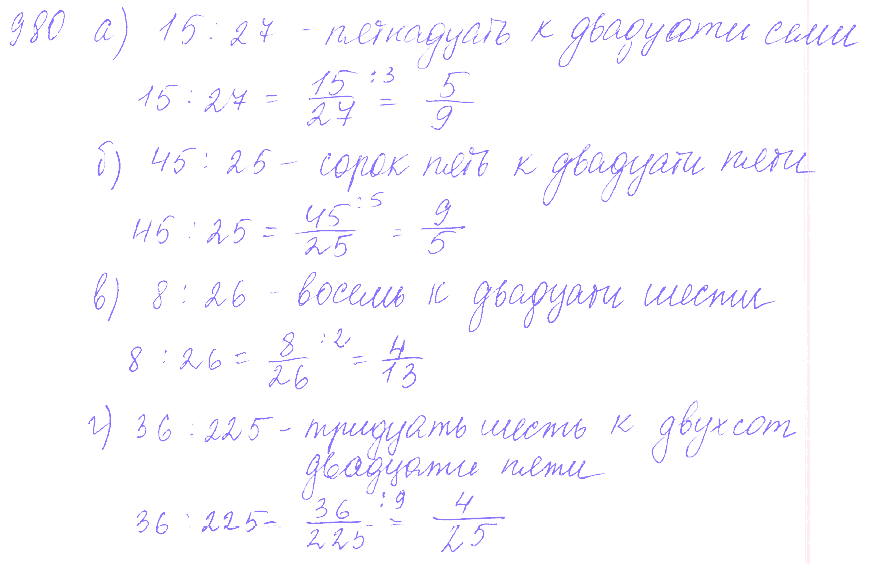 980 а) 15 : 27 - пятнадцать к двадцати семи
15 : 27 = 15/27 :3 = 5/9
б) 45 : 25 - сорок пять к двадцати пяти
45 : 25 = 45/25 :5 = 9/5
в) 8 : 26 - восемь к двадцати шести
8 : 26 = 8/26 :2 = 4/13
г) 36 : 225 - тридцать шесть к двухсот
двадцати пяти
36 : 225 - 36/225 :9 = 4/25